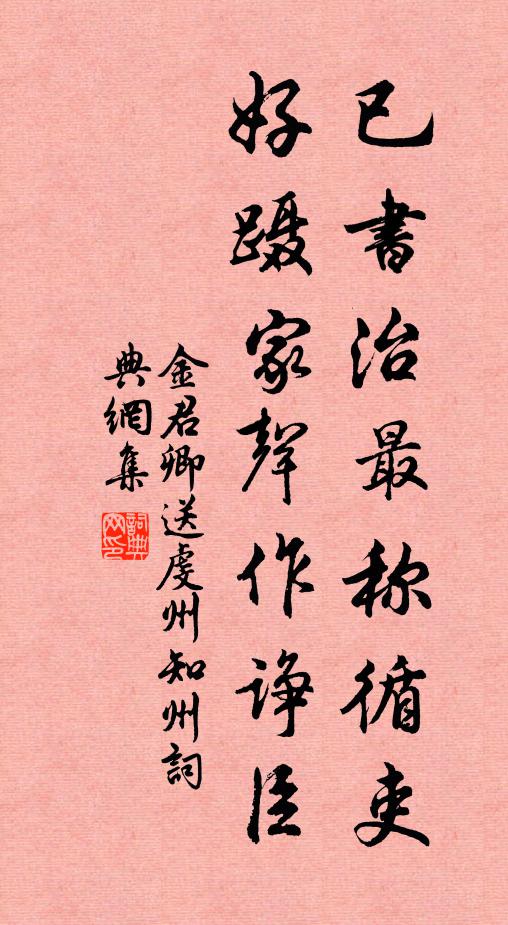 已書治最称循吏
好蹑家聲作诤臣
金君卿送虔州知州詞
典網集
詞典
网印